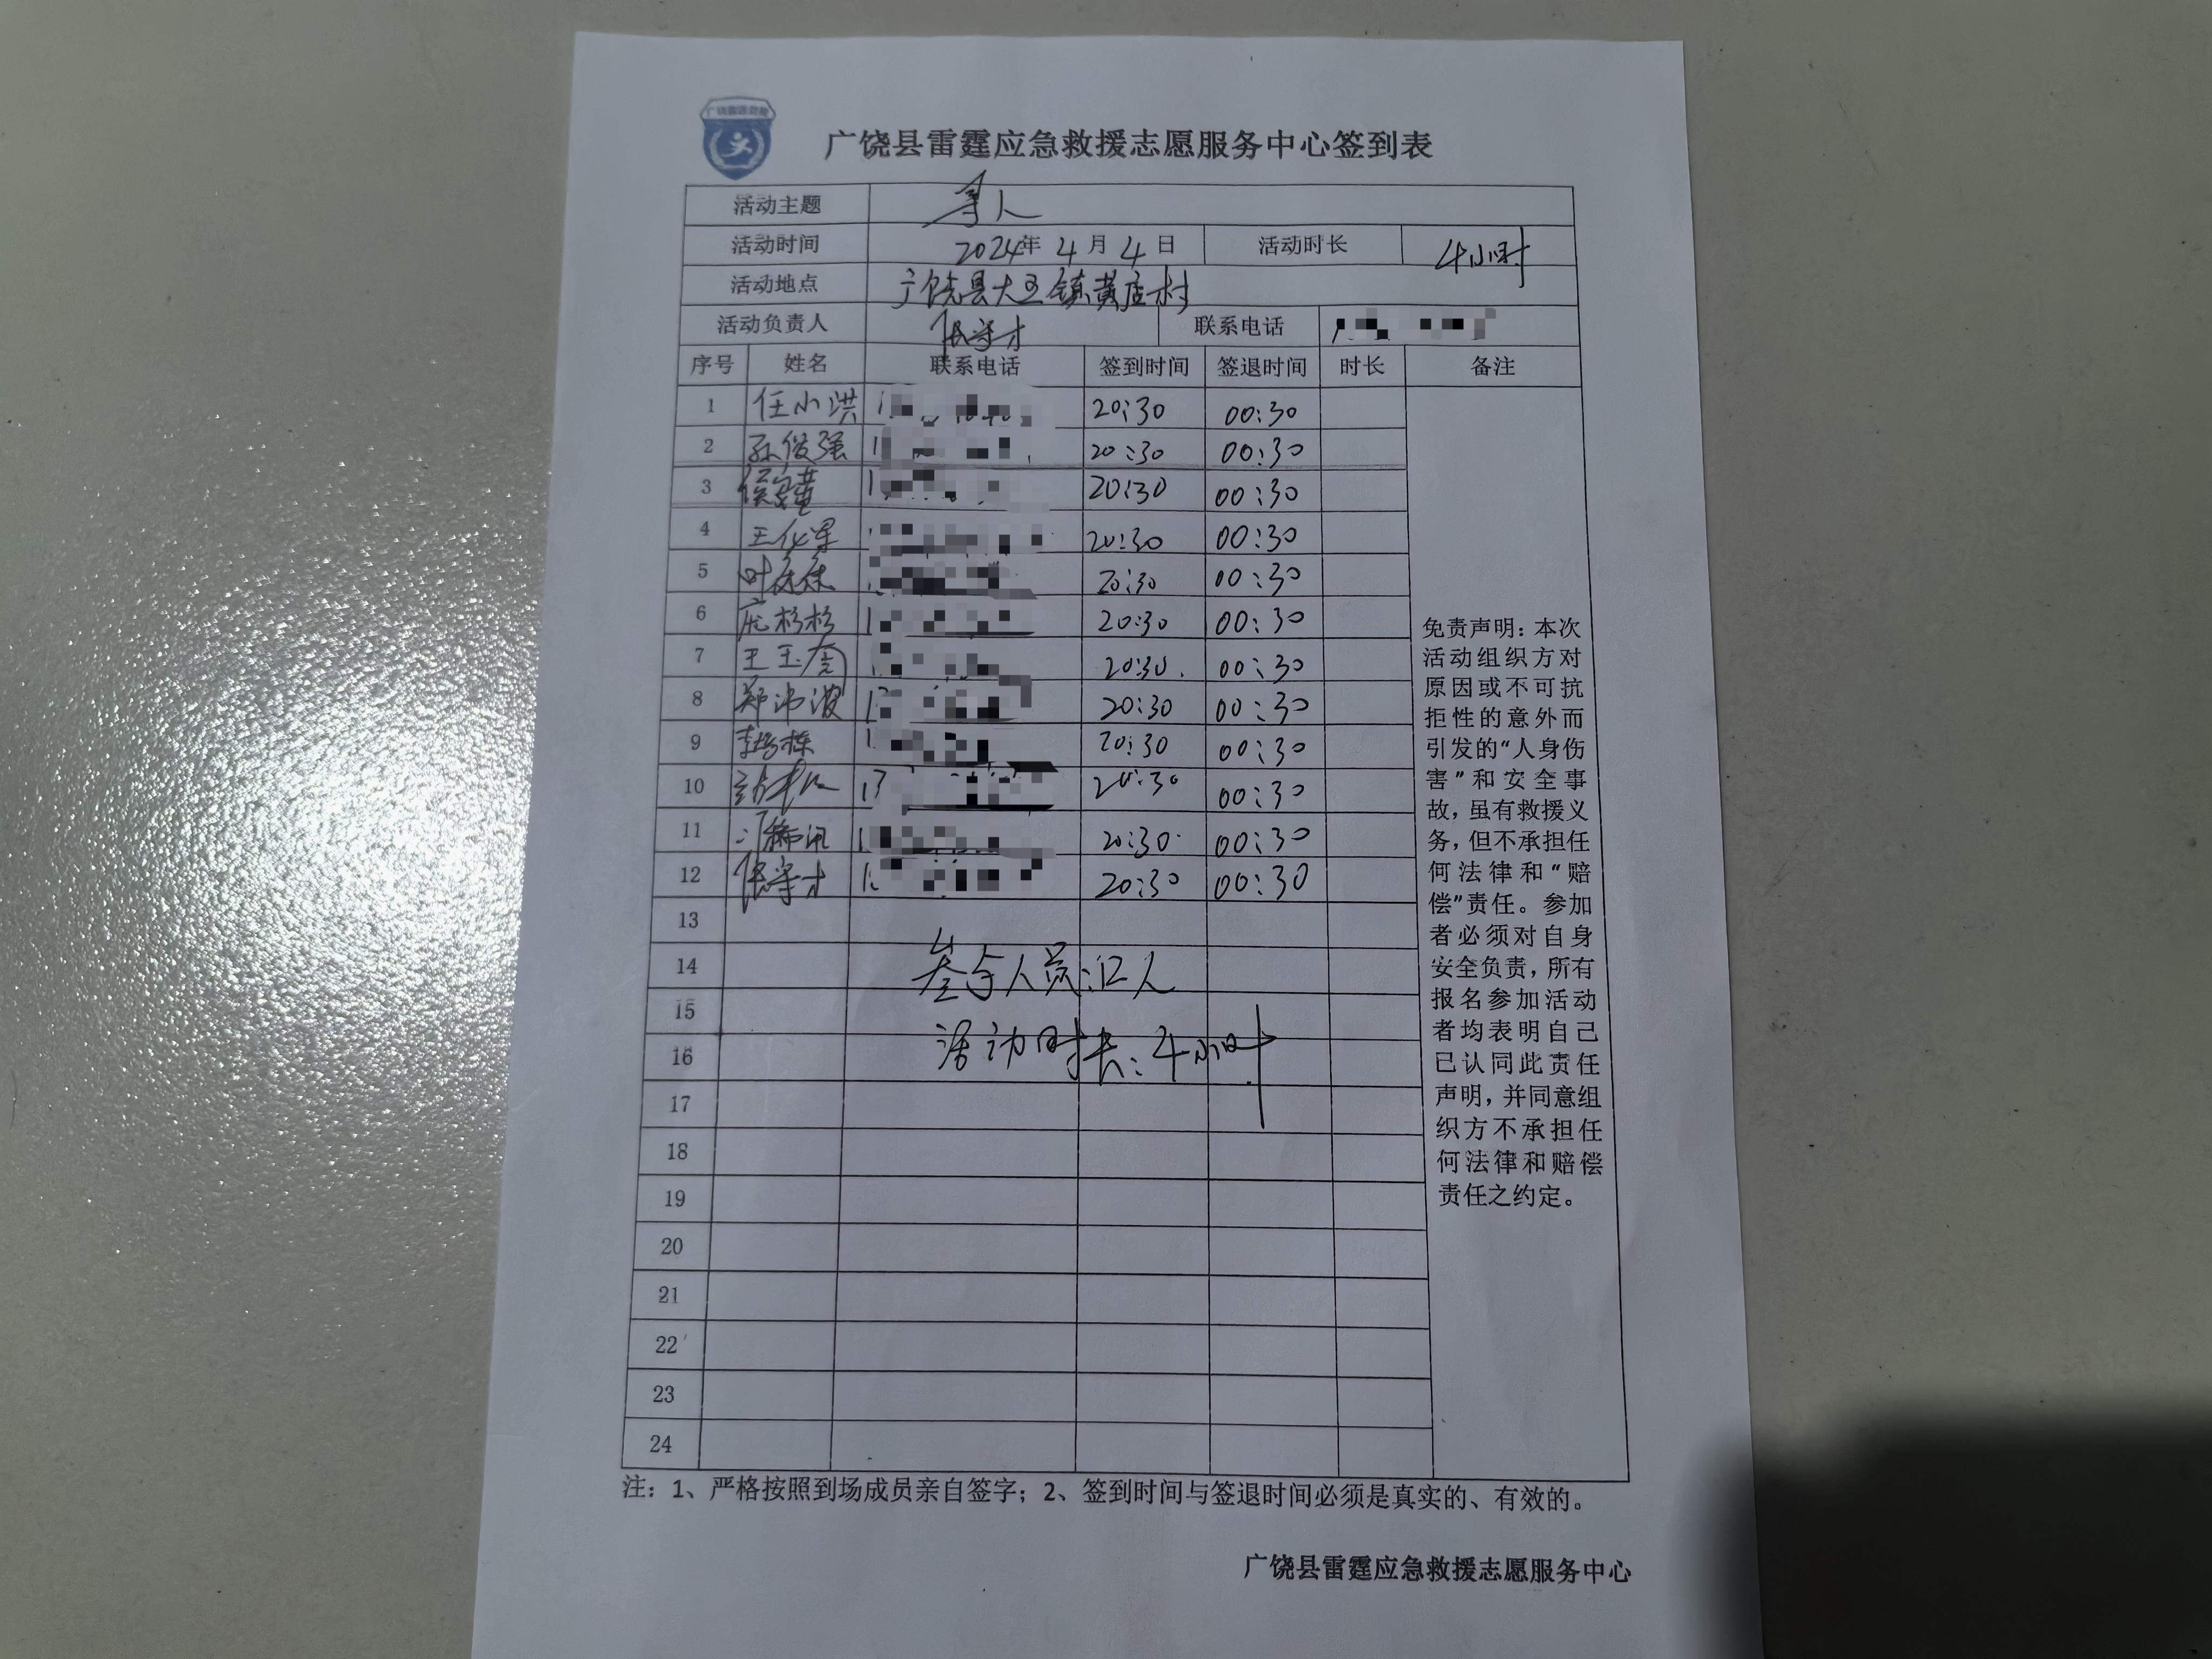 广饶县雷霆应急救援志愿服务中心签到表
活动主题 寻人
活动时间 2024年 4 月 4 日 活动时长 4小时
活动地点 广饶县大王镇黄庄村
活动负责人 张学才 联系电话
序号 姓名 联系电话 签到时间 签退时间 时长 备注
1 任小洪 1 20:30 00:30
2 孙俊强 1 20:30 00:30
3 1 20:30 00:30
4 王化军 20:30 00:30
5 叶 20:30 00:30
6 庞杉杉 1 20:30 00:30
7 王玉 20:30 00:30
8 郑沛波 1 20:30 00:30
9 李 1 20:30 00:30
10 13 20:30 00:30
11 1 20:30 00:30
12 张学才 1 20:30 00:30
13
14 参与人员:12人
15
16 活动时长:4小时
17
18
19
20
21
22
23
24
免责声明:本次
活动组织方对
原因或不可抗
拒性的意外而
引发的“人身伤
害”和安全事
故,虽有救援义
务,但不承担任
何法律和“赔
偿”责任。参加
者必须对自身
安全负责,所有
报名参加活动
者均表明自己
已认同此责任
声明,并同意组
织方不承担任
何法律和赔偿
责任之约定。
注:1、严格按照到场成员亲自签字;2、签到时间与签退时间必须是真实的、有效的。
广饶县雷霆应急救援志愿服务中心